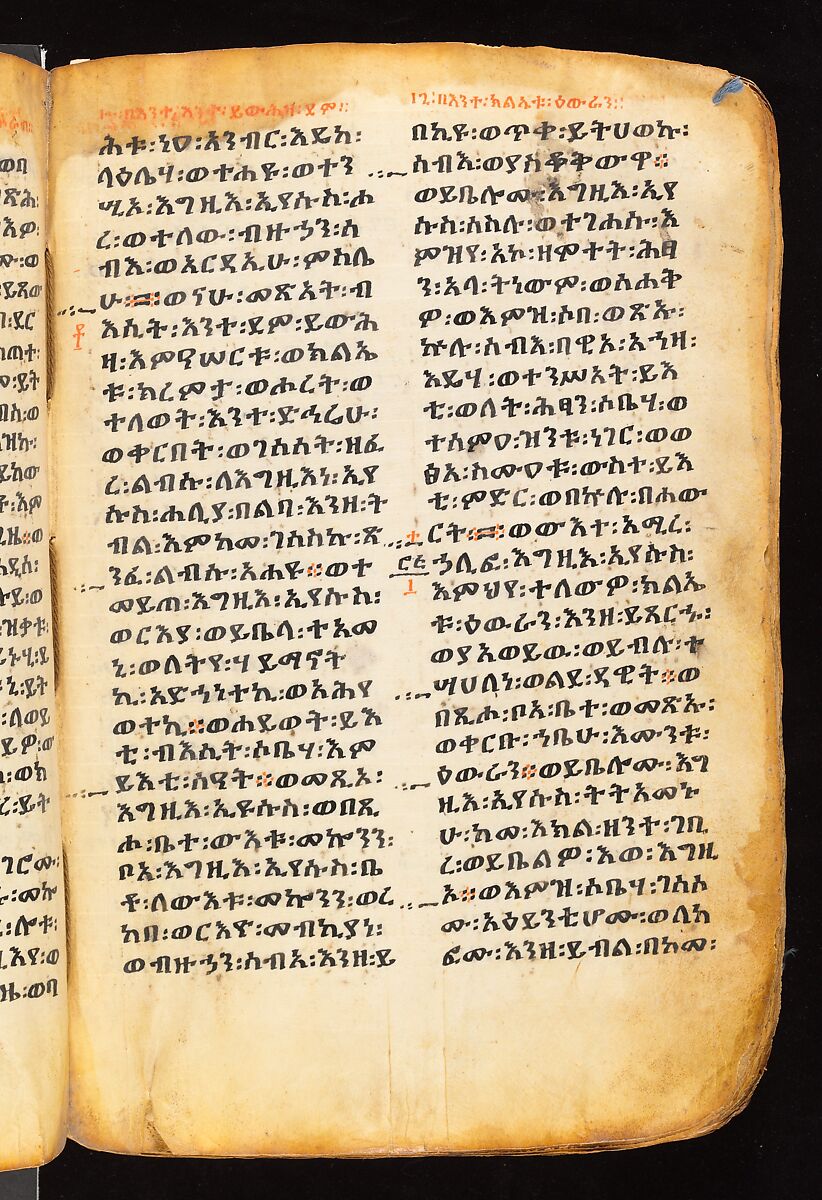 ፲፪፡በእንተ፡እንተ፡ይውሕዛ፡ደም።
ሕቱ፡ነዓ፡አንብር፡እዴከ፡
ላዕሌሃ፡ወተሐዩ፡ወተን
ሢአ፡እግዚእ፡ኢየሱስ፡ሖ
ረ፡ወተለው፡ብዙኃን፡ሰ
ብእ፡ወአርዳኢሁ፡ምስሌ
ሁ፡፡ወናሁ፡መጽአት፡ብ
እሲት፡እንተ፡ደም፡ይውሕ
ዛ፡እምዓሠርቱ፡ወክልኤ
ቱ፡ክረምታ፡ወሖረት፡ወ
ተለወት፡እንተ፡ድኅሬሁ፡
ወቀርበት፡ወገሰሰት፡ዘፈ
ረ፡ልብሱ፡ለእግዚእነ፡ኢየ
ሱስ፡ሐሊያ፡በልባ፡እንዘ፡ት
ብል፡እምከመ፡ገሰስኩ፡ጽ
ንፈ፡ልብሱ፡አሐዩ፡፡ወተ
መይጠ፡እግዚእ፡ኢየሱስ፡
ወርእያ፡ወይቤላ፡ተአመ
ኒ፡ወለትየ፡ሃይማኖት
ኪ፡አድኀነተኪ፡ወአሕየ
ወተኪ፡፡ወሐይወት፡ይእ
ቲ፡ብእሲት፡ሶቤሃ፡እም
ይእቲ፡ሰዓት፡፡ወመጺኦ፡
እግዚእ፡ኢየሱስ፡ወበጺ
ሖ፡ቤተ፡ውእቱ፡መኰንን፡
ቦአ፡እግዚእ፡ኢየሱስ፡ቤ
ቶ፡ለውእቱ፡መኰንን፡ወረ
ከበ፡ወርእዮ፡መብኪያነ፡
ወብዙኃን፡ሰብአ፡እንዘ፡ይ
፲፯፡በእንተ፡ክልኤቱ፡ዕውራን።
በኪዩ፡ወጥቀ፡ይትሀወኩ፡
ሰብእ፡ወያስቆቅውዋ፡፡
ወይቤሎሙ፡እግዚእ፡ኢየ
ሱስ፡ሰስሉ፡ወተገሐሱ፡እ
ምዝየ፡አኮ፡ዘሞተት፡ሕፃ
ን፡አላ፡ትነውም፡ወስሐቅ
ዎ፡ወእምዝ፡ሶበ፡ወጽኡ፡
ኵሉ፡ሰብእ፡በዊኦ፡አኀዛ፡
እዴሃ፡ወተንሥአት፡ይእ
ቲ፡ወለት፡ሕፃን፡ሶቤሃ፡ወ
ተሰምዐ፡ዝንቱ፡ነገር፡ወወ
ፅአ፡ስሙዓቱ፡ውስተ፡ይእ
ቲ፡ምድር፡ወበኵሉ፡በሐው
ርት፡፡ወውእተ፡አሚረ፡
ኀሊፎ፡እግዚእ፡ኢየሱስ፡
እምህየ፡ተለውዎ፡ክልኤ
ቱ፡ዕውራን፡እንዘ፡ይጸርኁ፡
ወያአወይዉ፡ወይብሉ፡ተ
ሣሀለነ፡ወልደ፡ዳዊት፡፡ወ
በጺሖ፡ቦአ፡ቤተ፡ወመጽኡ፡
ወቀርቡ፡ኀቤሁ፡እሙንቱ፡
ዕውራን፡፡ወይቤሎሙ፡እግ
ዚእ፡ኢየሱስ፡ትትአመኑ
ሁ፡ከመ፡እክል፡ዘንተ፡ገቢ
ረ፡ወይቤልዎ፡እወ፡እግዚ
ኦ፡፡ወእምዝ፡ሶቤሃ፡ገሰሶ
ሙ፡አዕይንቲሆሙ፡ወለከ
ፎሙ፡እንዘ፡ይብል፡በከመ፡